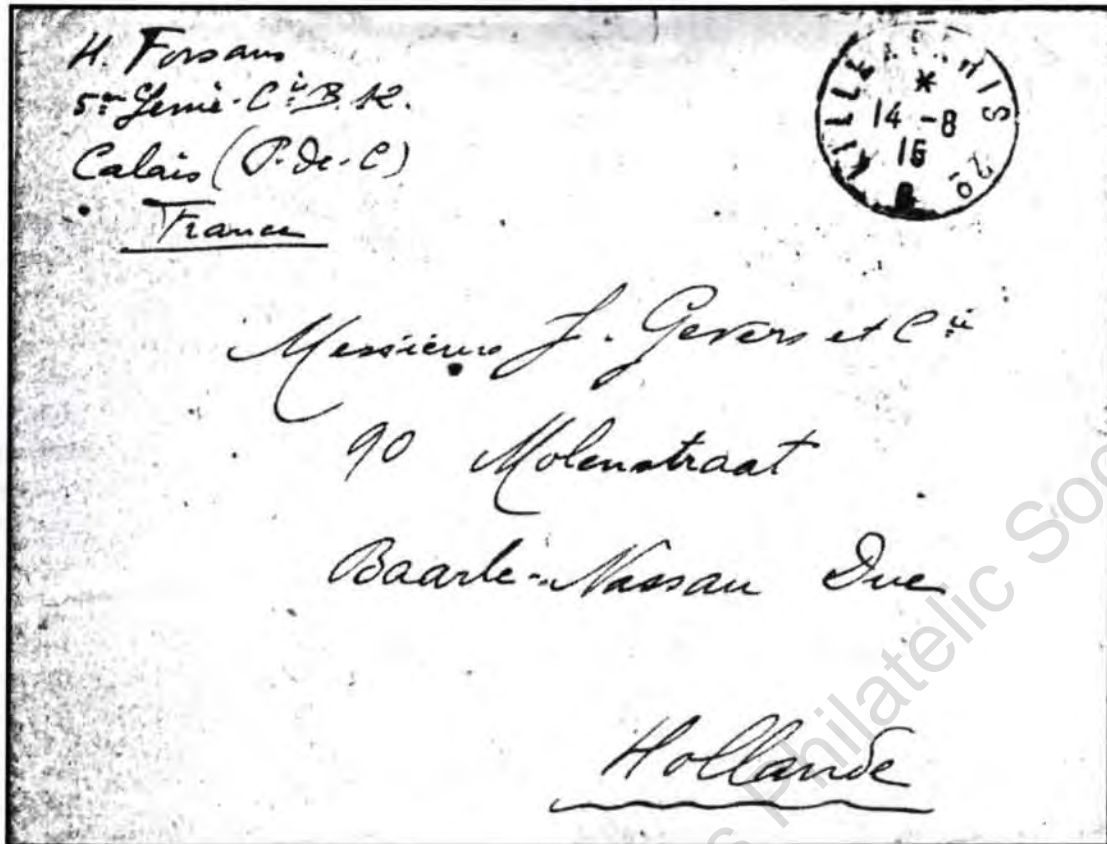 H. Forsans
5me Génie - Cie B. K.
Calais (P. de. C)
France
LILLE A PARIS 2º
*
14 -8
15
Messieurs J. Gevers et Cie
90 Molenstraat
Baarle-Nassau Due
Hollande
s Philatelic Soc